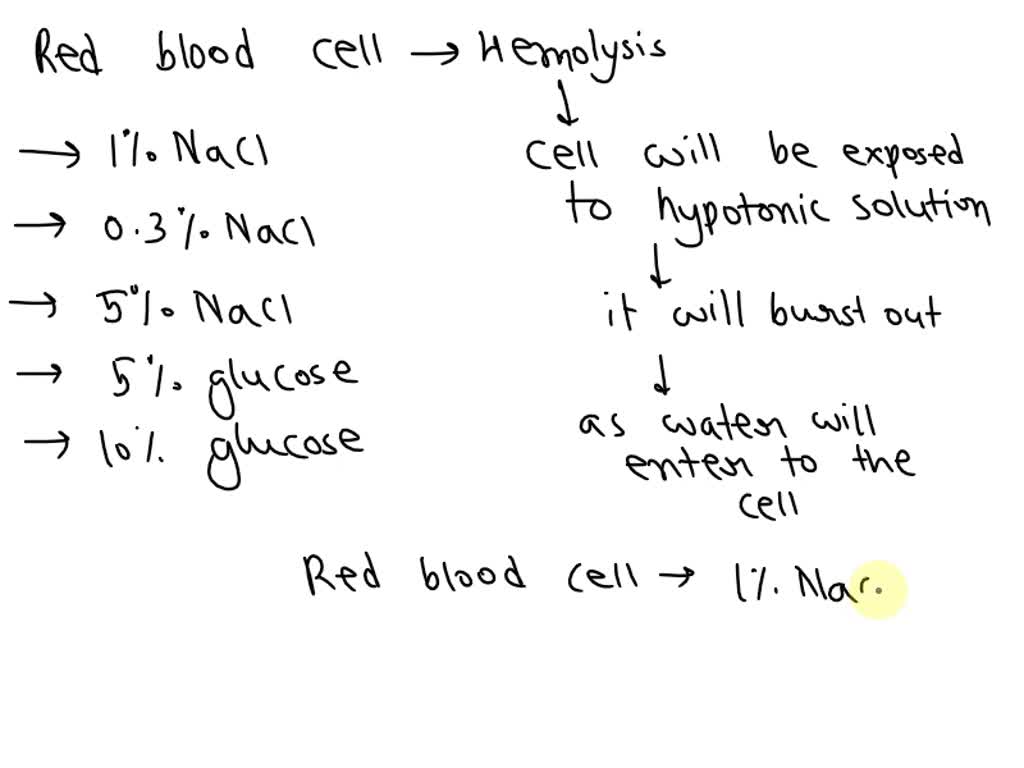 Red blood cell → Hemolysis
↓
→ 1% NaCl
→ 0.3% NaCl
→ 5% NaCl
→ 5% glucose
→ 10% glucose
cell will be exposed
to hypotonic solution
↓
it will burst out
↓
as water will
enter to the
cell
Red blood cell → 1% Nac